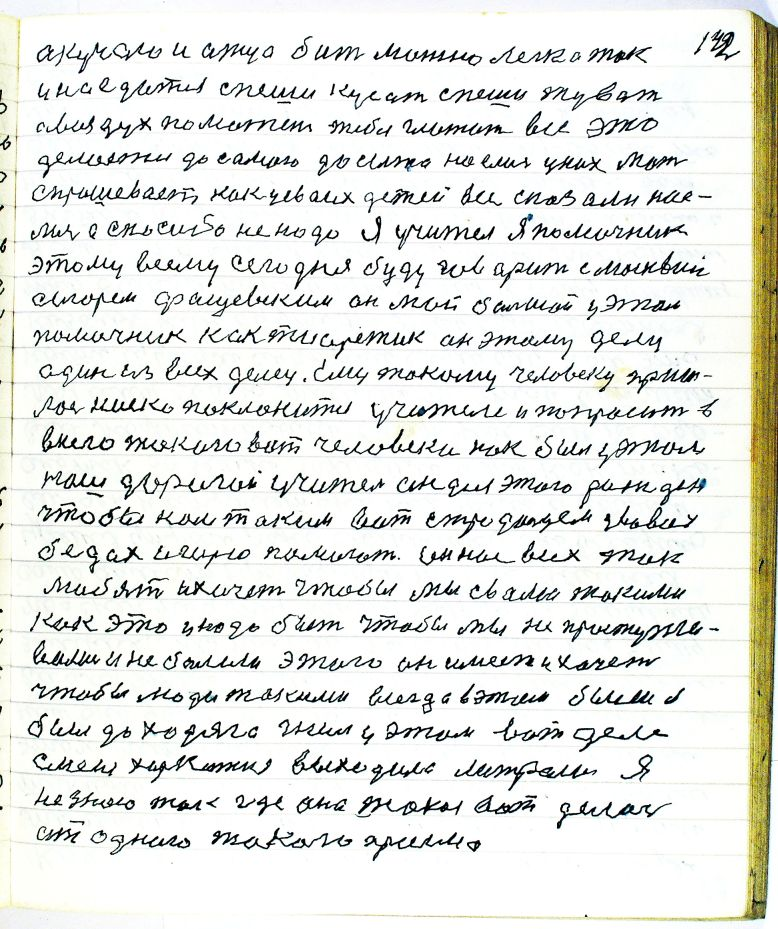 142
акучало и атуа бит можно легка так
и наедятся спеши кусат спеши жуват
а воздух поможет тебя глотат все это
делаетжи до самаго досежа наелис у них мат
спрашевает, как у ваих детей все сповали нае-
лис а спосибо не надо Я учител Я помочник
этому всему сегодня буду говарит с москвий
сигорем фащевским он мой балшой у этом
помочник как тиаретик он этаму делу
один из всех делец. Ему такому человеку приш-
лос ниско поклонится учителе и попрасит в
внего такого вот человека как был у этом
наш дорогой учител он для этого рожден
чтобы нам таким вот страдацем увових
бедах и горю помогат. он нас всех так
любят и хочет чтобы мы свами такими
как это у надо быт чтобы мы не простужи-
вали и не балели этого он имеет и хочет
чтобы люди такими всегда вэтом были я
был до ходяга гнил у этом вот деле
смену харкатня выходила литрами Я
не знаю так где она такая вот делас
от одного такого приема